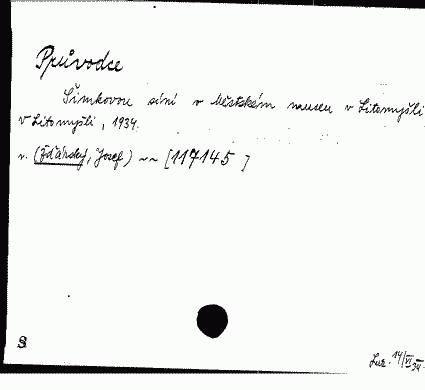 Průvodce
Šimkovou síní v Městském museu v Litomyšli
v Litomyšli, 1934.
v. (Žďárský, Josef) ~~ [117145]
§
Luz. 14/VI 34.